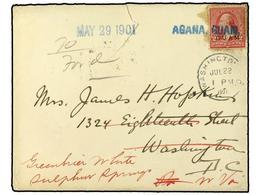 MAY 29 1901 AGANA, GUAM.
To
Ford
WASHINGTON
JUL 22
1 PM
Mrs. James H. Hopkins
1324 Eighteenth Street
Washington
D.C.
Greenbrier White
Sulphur Springs
W. Va